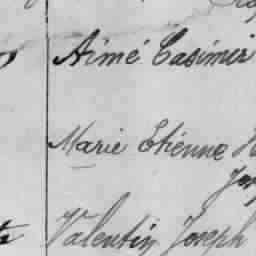 Aimé Casimir
Marie Etienne
Valentin Joseph